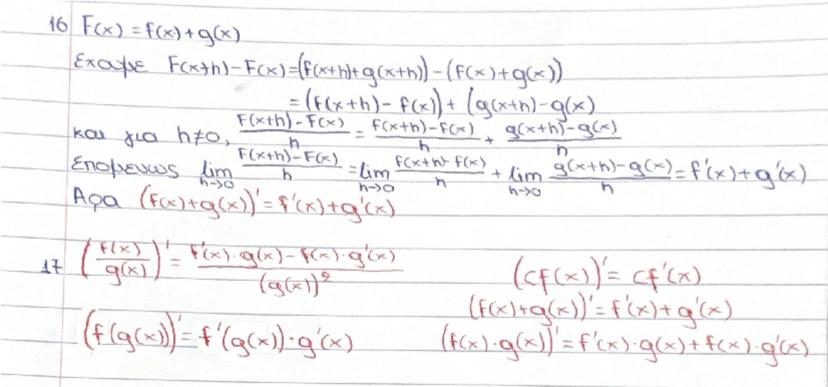 16 F(x) = f(x) + g(x)
Εχουμε F(x+h) - F(x) = (f(x+h) + g(x+h)) - (f(x) + g(x))
= (f(x+h) - f(x)) + (g(x+h) - g(x)
και για h≠0, \frac{F(x+h) - F(x)}{h} = \frac{f(x+h) - f(x)}{h} + \frac{g(x+h) - g(x)}{h}
Επομενως \lim_{h→0} \frac{F(x+h) - F(x)}{h} = \lim_{h→0} \frac{f(x+h) - f(x)}{h} + \lim_{h→0} \frac{g(x+h) - g(x)}{h} = f'(x) + g'(x)
Αρα (f(x) + g(x))' = f'(x) + g'(x)
17 (\frac{f(x)}{g(x)})' = \frac{f'(x)·g(x) - f(x)·g'(x)}{(g(x))^2}
(cf(x))' = cf'(x)
(f(x) + g(x))' = f'(x) + g'(x)
(f(g(x))' = f'(g(x))·g'(x)
(f(x)·g(x))' = f'(x)·g(x) + f(x)·g'(x)